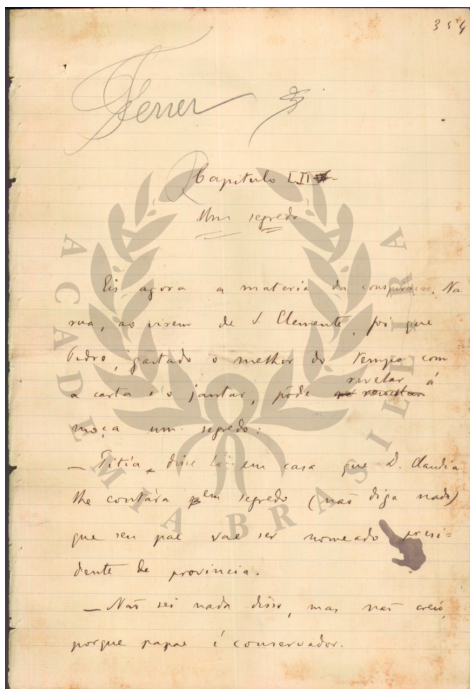 354
Ferrer
Capitulo LII
Um segredo
Eis agora a materia da conspiração. Na
rua, ao virem de S. Clemente, foi que
Pedro, gastado o melhor do tempo com
a carta e o jantar, pôde revelar á
moça um segredo:
— Titia disse lá em casa que D. Claudia
lhe contára em segredo (não diga nada)
que seu pae vae ser nomeado presi-
dente de provincia.
— Não sei nada disso, mas não creio,
porque papae é conservador.
ACADEMIA BRASILEIRA